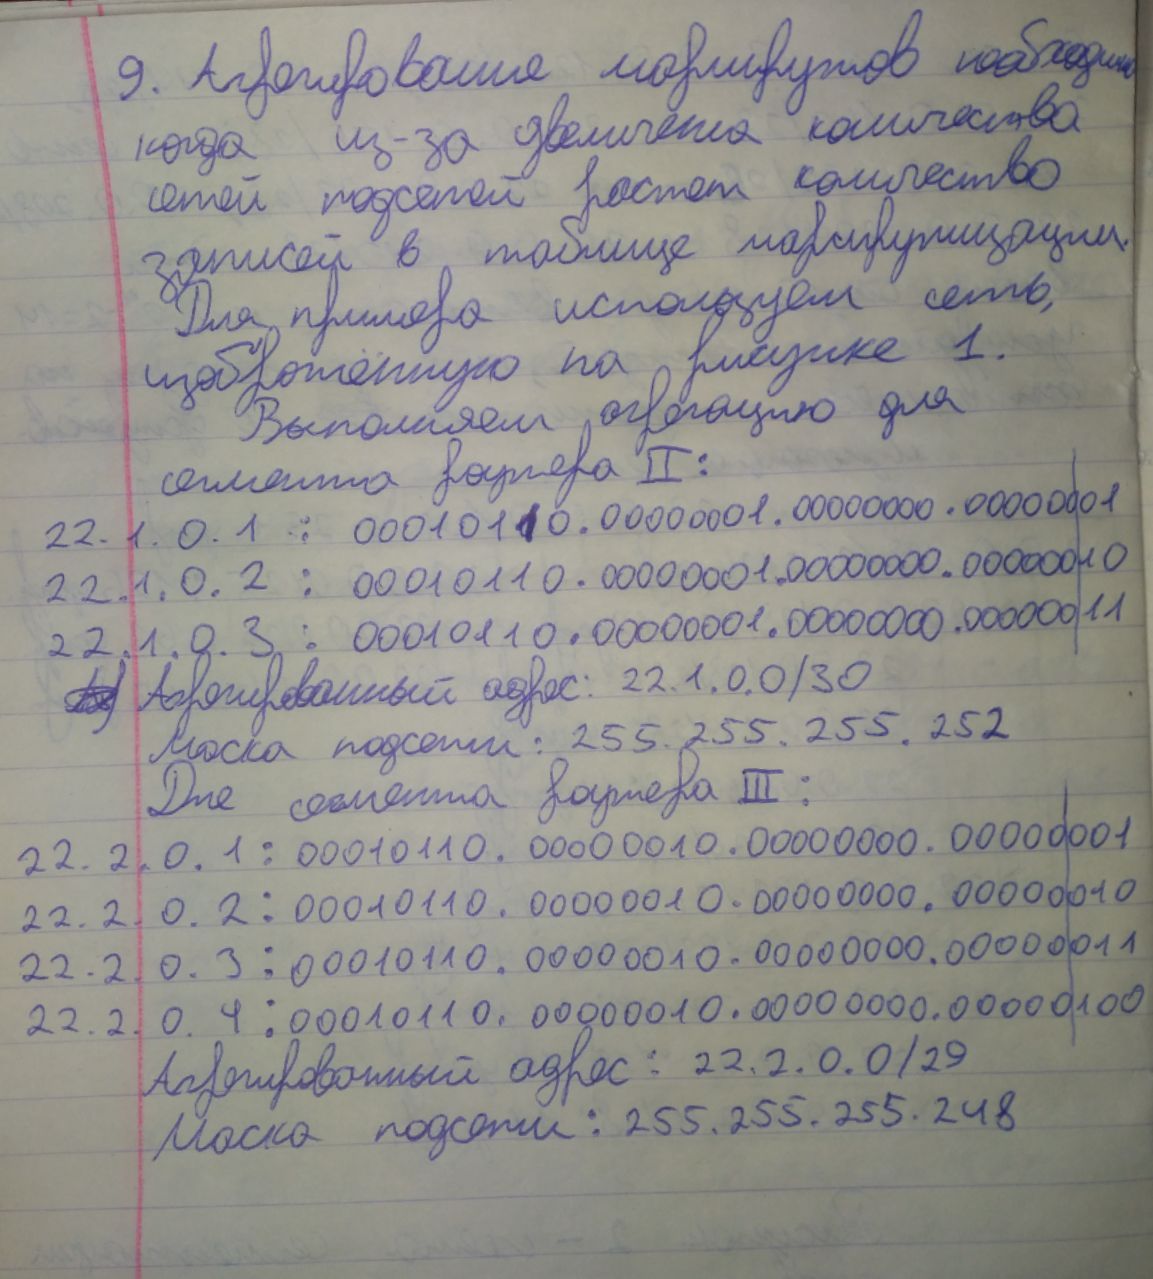 9. Агрегирование маршрутов необходимо
когда из-за увеличения количества
сетей подсетей растет количество
записей в таблице маршрутизации.
Для примера используем сеть,
изображенную на рисунке 1.
Выполняем агрегацию для
сегмента роутера II:
22.1.0.1 : 00010110.00000001.00000000.00000001
22.1.0.2 : 00010110.00000001.00000000.00000010
22.1.0.3 : 00010110.00000001.00000000.00000011
Агрегированный адрес: 22.1.0.0/30
Маска подсети: 255.255.255.252
Для сегмента роутера III:
22.2.0.1 : 00010110.00000010.00000000.00000001
22.2.0.2 : 00010110.00000010.00000000.00000010
22.2.0.3 : 00010110.00000010.00000000.00000011
22.2.0.4 : 00010110.00000010.00000000.00000100
Агрегированный адрес: 22.2.0.0/29
Маска подсети: 255.255.255.248